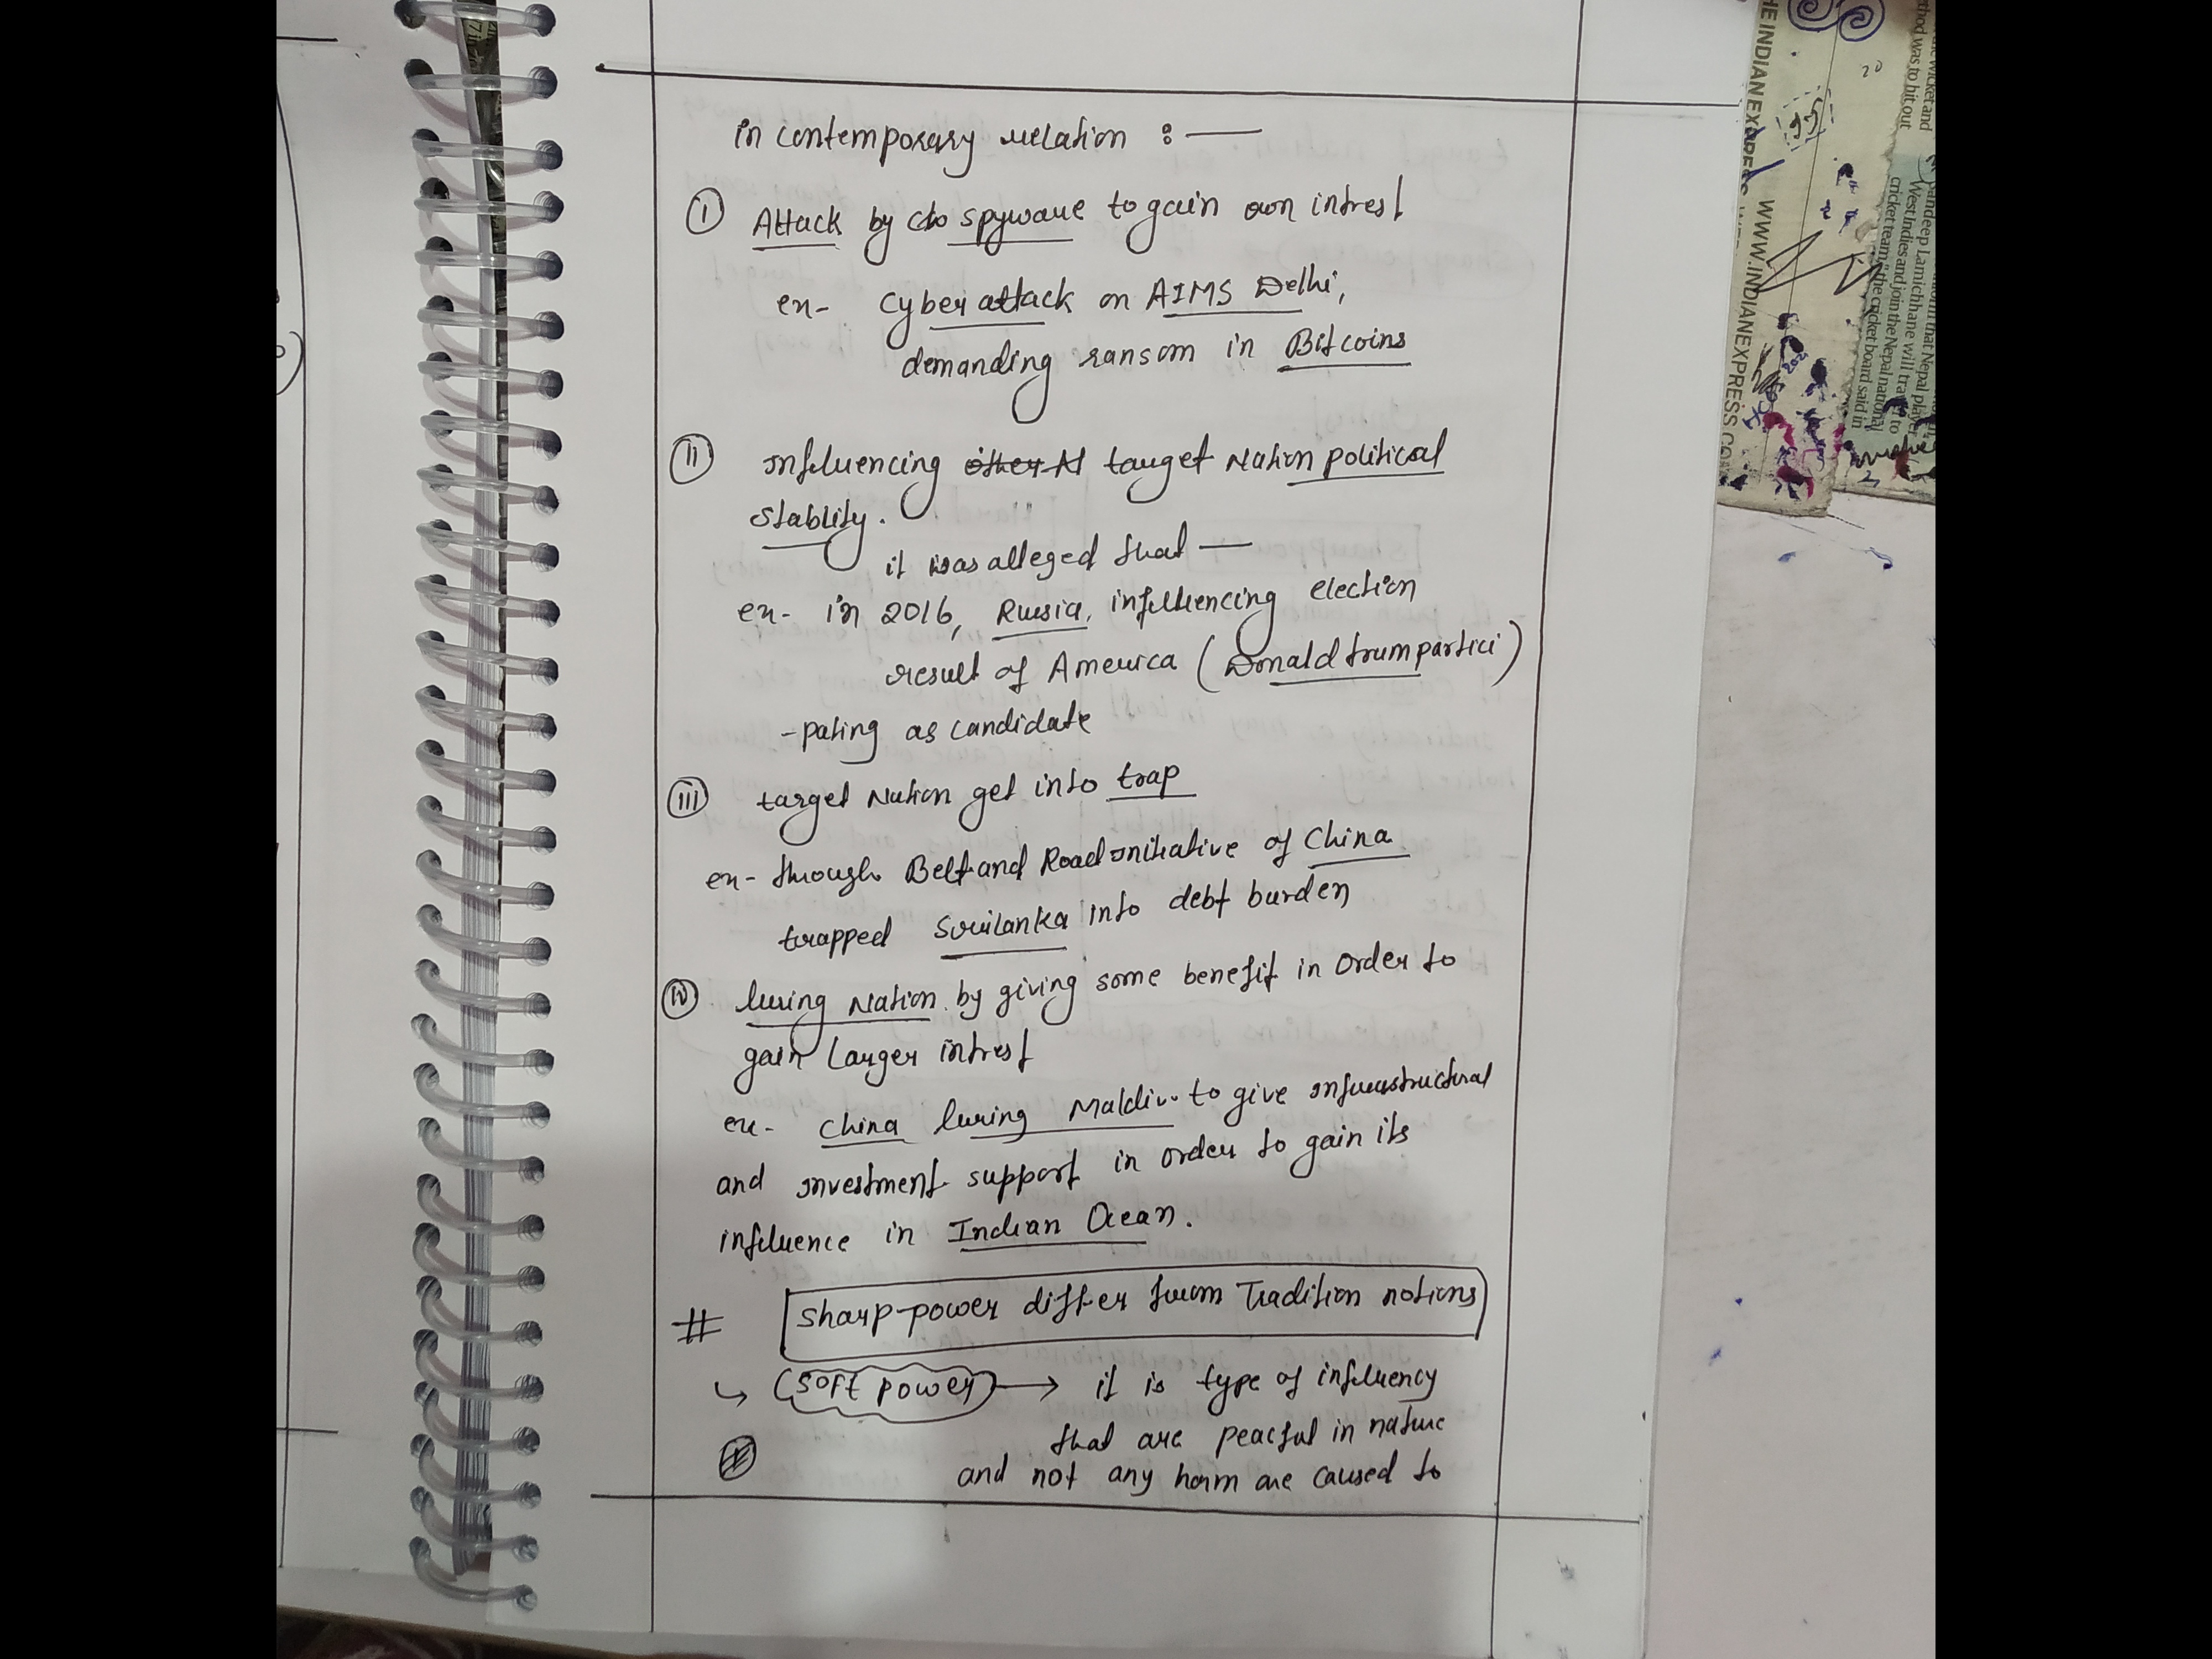 in contemporary relation :—
(I) Attack by spyware to gain own intrest
ex- Cyber attack on AIMS Delhi,
demanding ransom in Bitcoins
(II) Influencing target Nation political
stablity.
it was alleged that —
ex- in 2016, Russia, influencing election
result of America (Donald trump partici)
-pating as candidate
(III) target Nation get into trap
ex- through Belt and Road Initiative of China
trapped Srilanka into debt burden
(IV) luring Nation by giving some benefit in order to
gain Larger intrest
ex- China luring Maldiv to give infrastructural
and investment support in order to gain its
influence in Indian Ocean.
# Sharp-power differ from Tradition notions
↳ (soft power) → it is type of influency
that are peacful in nature
and not any harm are caused to
THE INDIAN EXPRESS, WWW.INDIANEXPRESS.COM
20
the wicket and
method was to bit out
that Nepal player
Sandeep Lamichhane will travel to
West Indies and join the Nepal national
cricket team," the cricket board said in